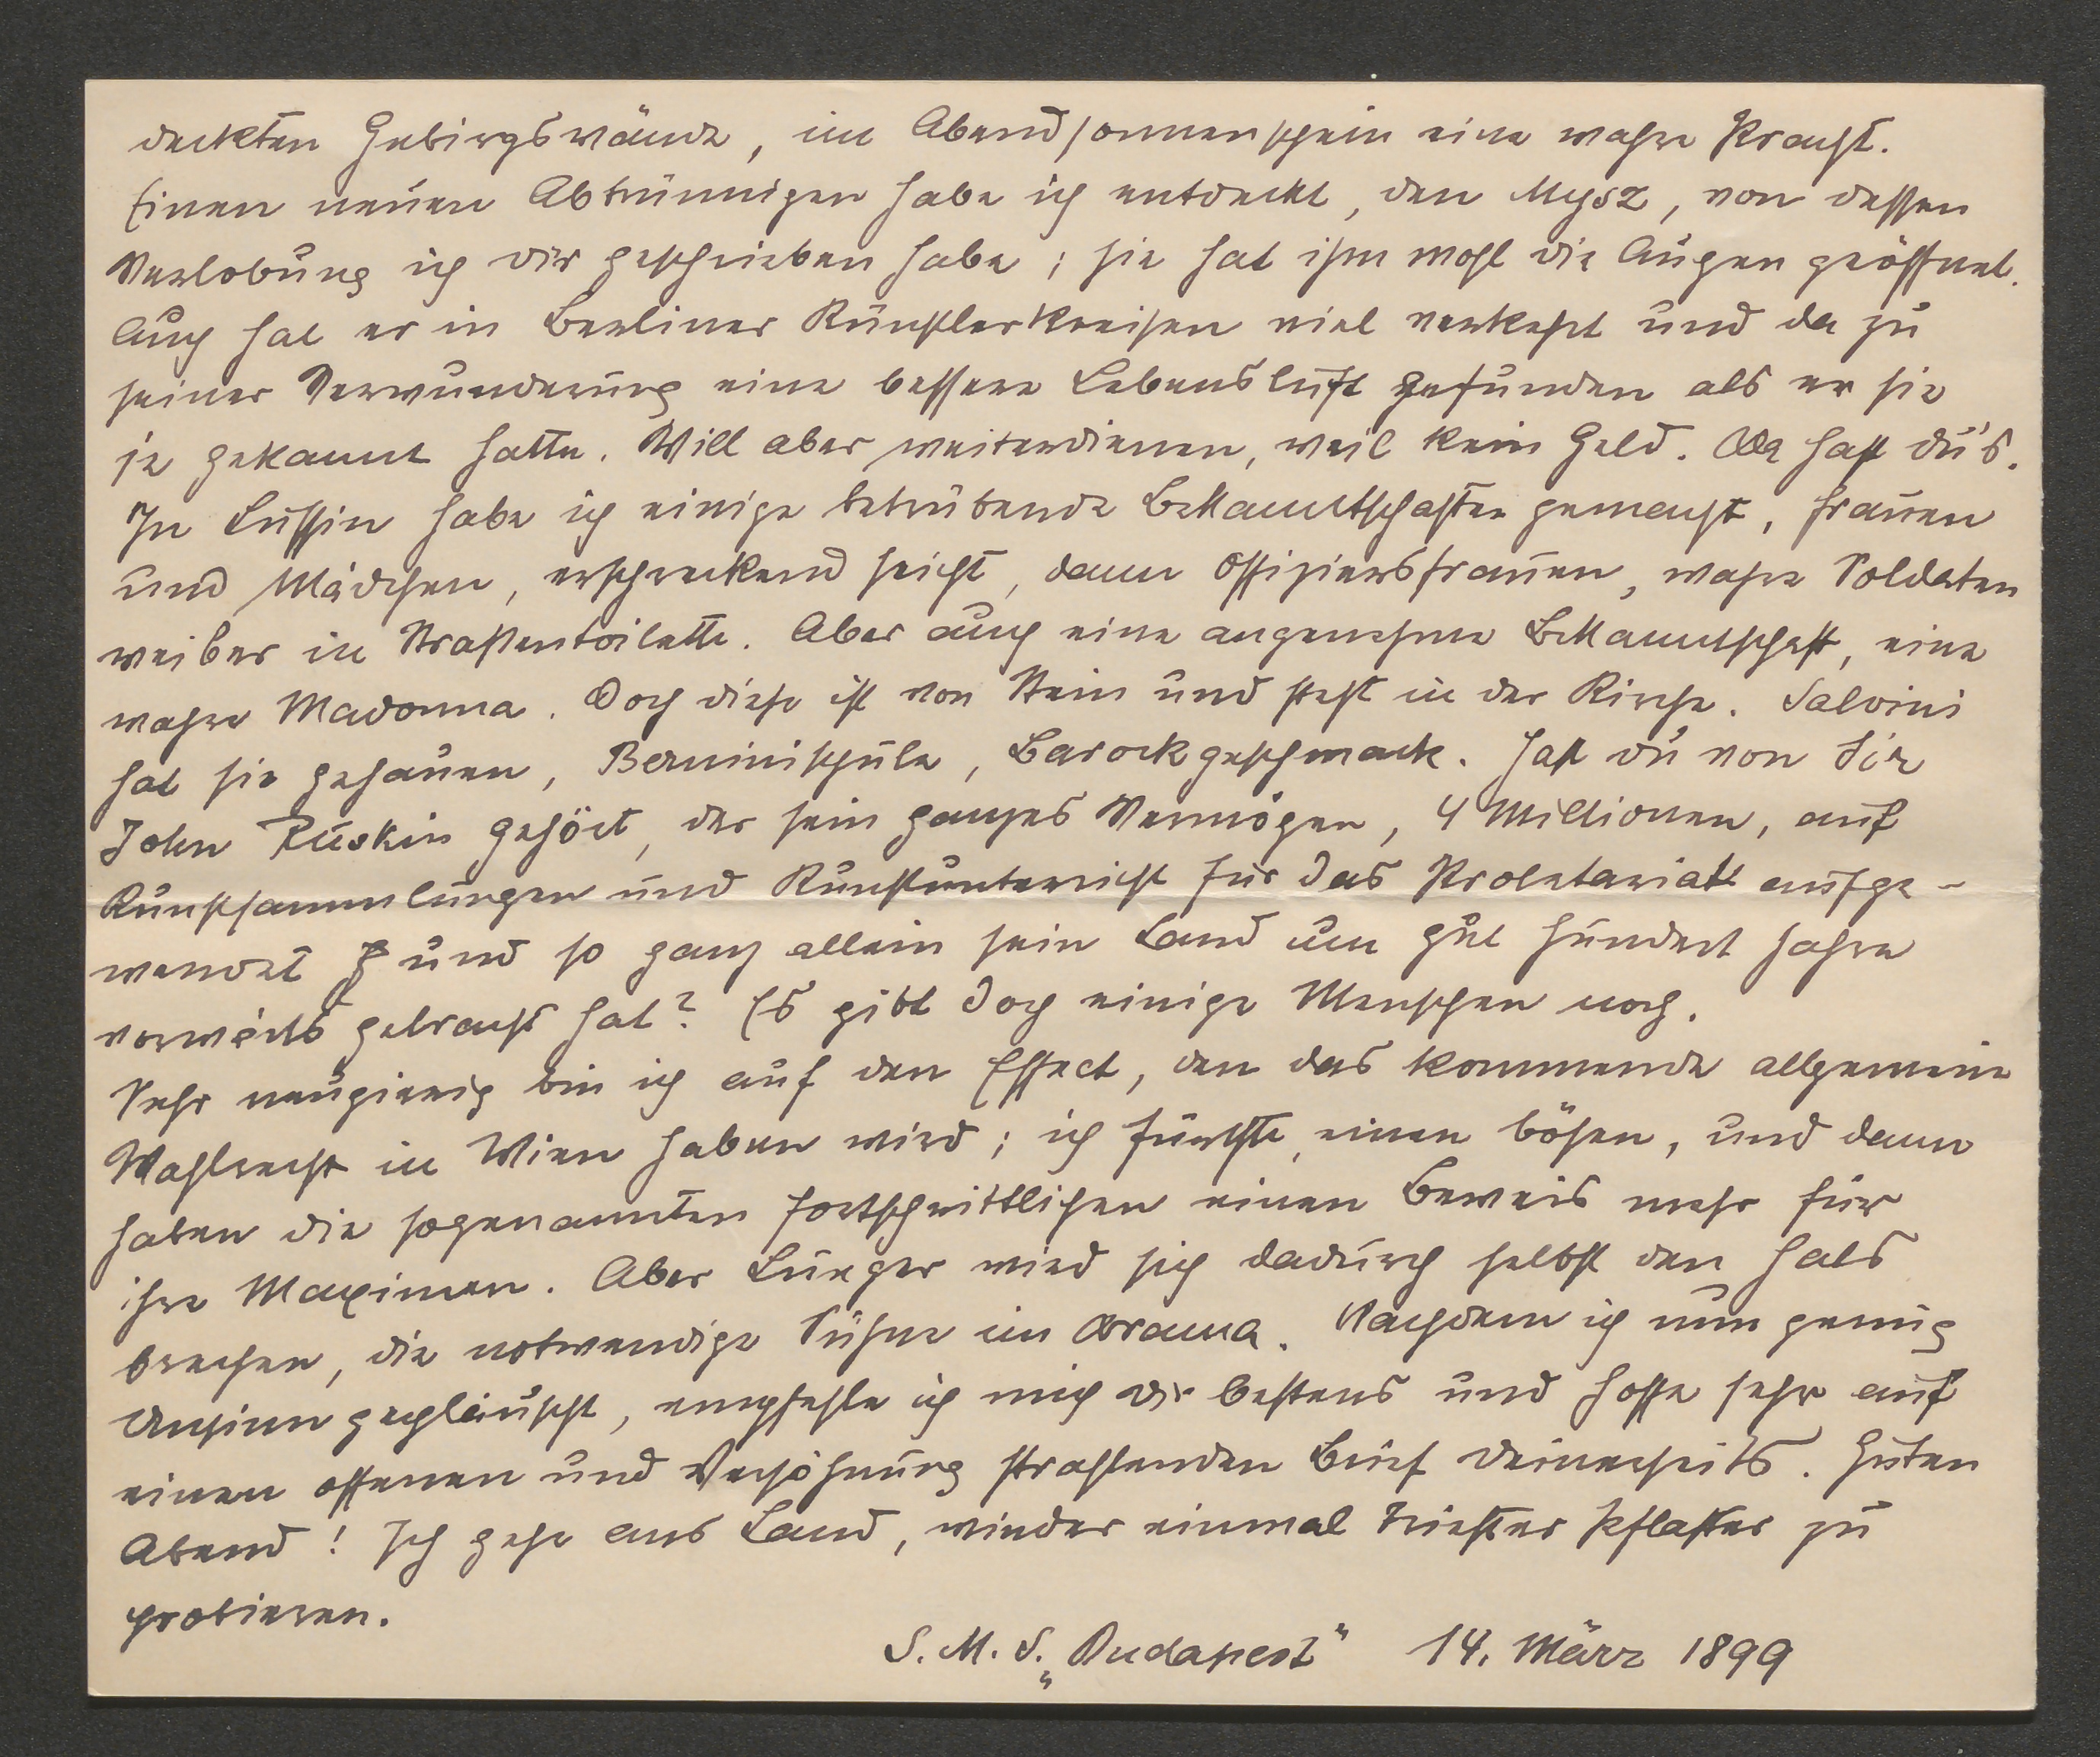 deckten Gebirgswände, im Abendsonnenschein eine wahre Pracht.
Einen neuen Abtrünnigen habe ich entdeckt, den Mysz, von dessen
Verlobung ich dir geschrieben habe; sie hat ihm wohl die Augen geöffnet.
Auch hat er in Berliner Künstlerkreisen viel verkehrt und da zu
seiner Verwunderung eine bessere Lebensluft gefunden als er sie
je gekannt hatte. Will aber weiterdienen, weil kein Geld. Da hast du's.
In Lussin habe ich einige betrübende Bekanntschaften gemacht, Frauen
und Mädchen, erschreckend seicht, dann Offiziersfrauen, wahre Soldaten
weiber in Straßentoilette. Aber auch eine angenehme Bekanntschaft, eine
wahre Madonna. Doch diese ist von Stein und steht in der Kirche. Salvini
hat sie gehauen, Berninischule, Barockgeschmack. Hast du von Sir
John Ruskin gehört, der sein ganzes Vermögen, 4 Millionen, auf
Kunstsammlungen und Kunstunterricht für das Proletariat aufge-
wendet und so ganz allein sein Land um gut hundert Jahre
vorwärts gebracht hat? Es gibt doch einige Menschen noch.
Sehr neugierig bin ich auf den Effect, den das kommende allgemeine
Wahlrecht in Wien haben wird; ich fürchte, einen bösen, und dann
haben die sogenannten Fortschrittlichen einen Beweis mehr für
ihre Maximen. Aber Lueger wird sich dadurch selbst den Hals
brechen, die notwendige Sühne im Drama. Nachdem ich nun genug
Unsinn geplauscht, empfehle ich mich dir bestens und hoffe sehr auf
einen offenen und Versöhnung strahlenden Brief deinerseits. Guten
Abend! Ich gehe ans Land, wieder einmal Triester Pflaster zu
probieren.
S. M. S. „Budapest" 14. März 1899